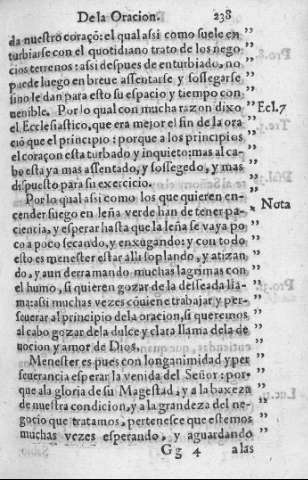 De la Oracion. 238
da nuestro coraçõ: el qual asi como suele en
turbiarse con el quotidiano trato de los nego
cios terrenos: assi despues de enturbiado, no
puede luego en breue assentarse y sossegarse
sino le dan para esto su espacio y tiempo con
uenible. Por lo qual con mucha razon dixo
el Ecclesiastico, que era mejor el fin de la ora
ció que el principio: porque a los principios
el coraçon esta turbado y inquieto: mas al ca-
bo esta ya mas assentado, y sossegado, y mas
dispuesto para su exercicio.
Ecl.7
Por lo qual asi como los que quieren en-
cender fuego en leña verde han de tener pa-
ciencia, y esperar hasta que la leña se vaya po
co a poco secando, y enxugando: y con todo
esto es menester estar alli soplando, y atizan
do, y aun derramando muchas lagrimas con
el humo, si quieren gozar de la desseada lla-
ma: assi muchas vezes cõuiene trabajar y per-
seuerar al principio de la oracion, si queremos
al cabo gozar de la dulce y clara llama de la de
uocion y amor de Dios.
Nota
Menester es pues con longanimidad y per
seuerancia esperar la venida del Señor: por-
que a la gloria de su Magestad, y a la baxeza
de nuestra condicion, y a la grandeza del ne-
gocio que tratamos, pertenesce que estemos
muchas vezes esperando, y aguardando
Gg 4 a las